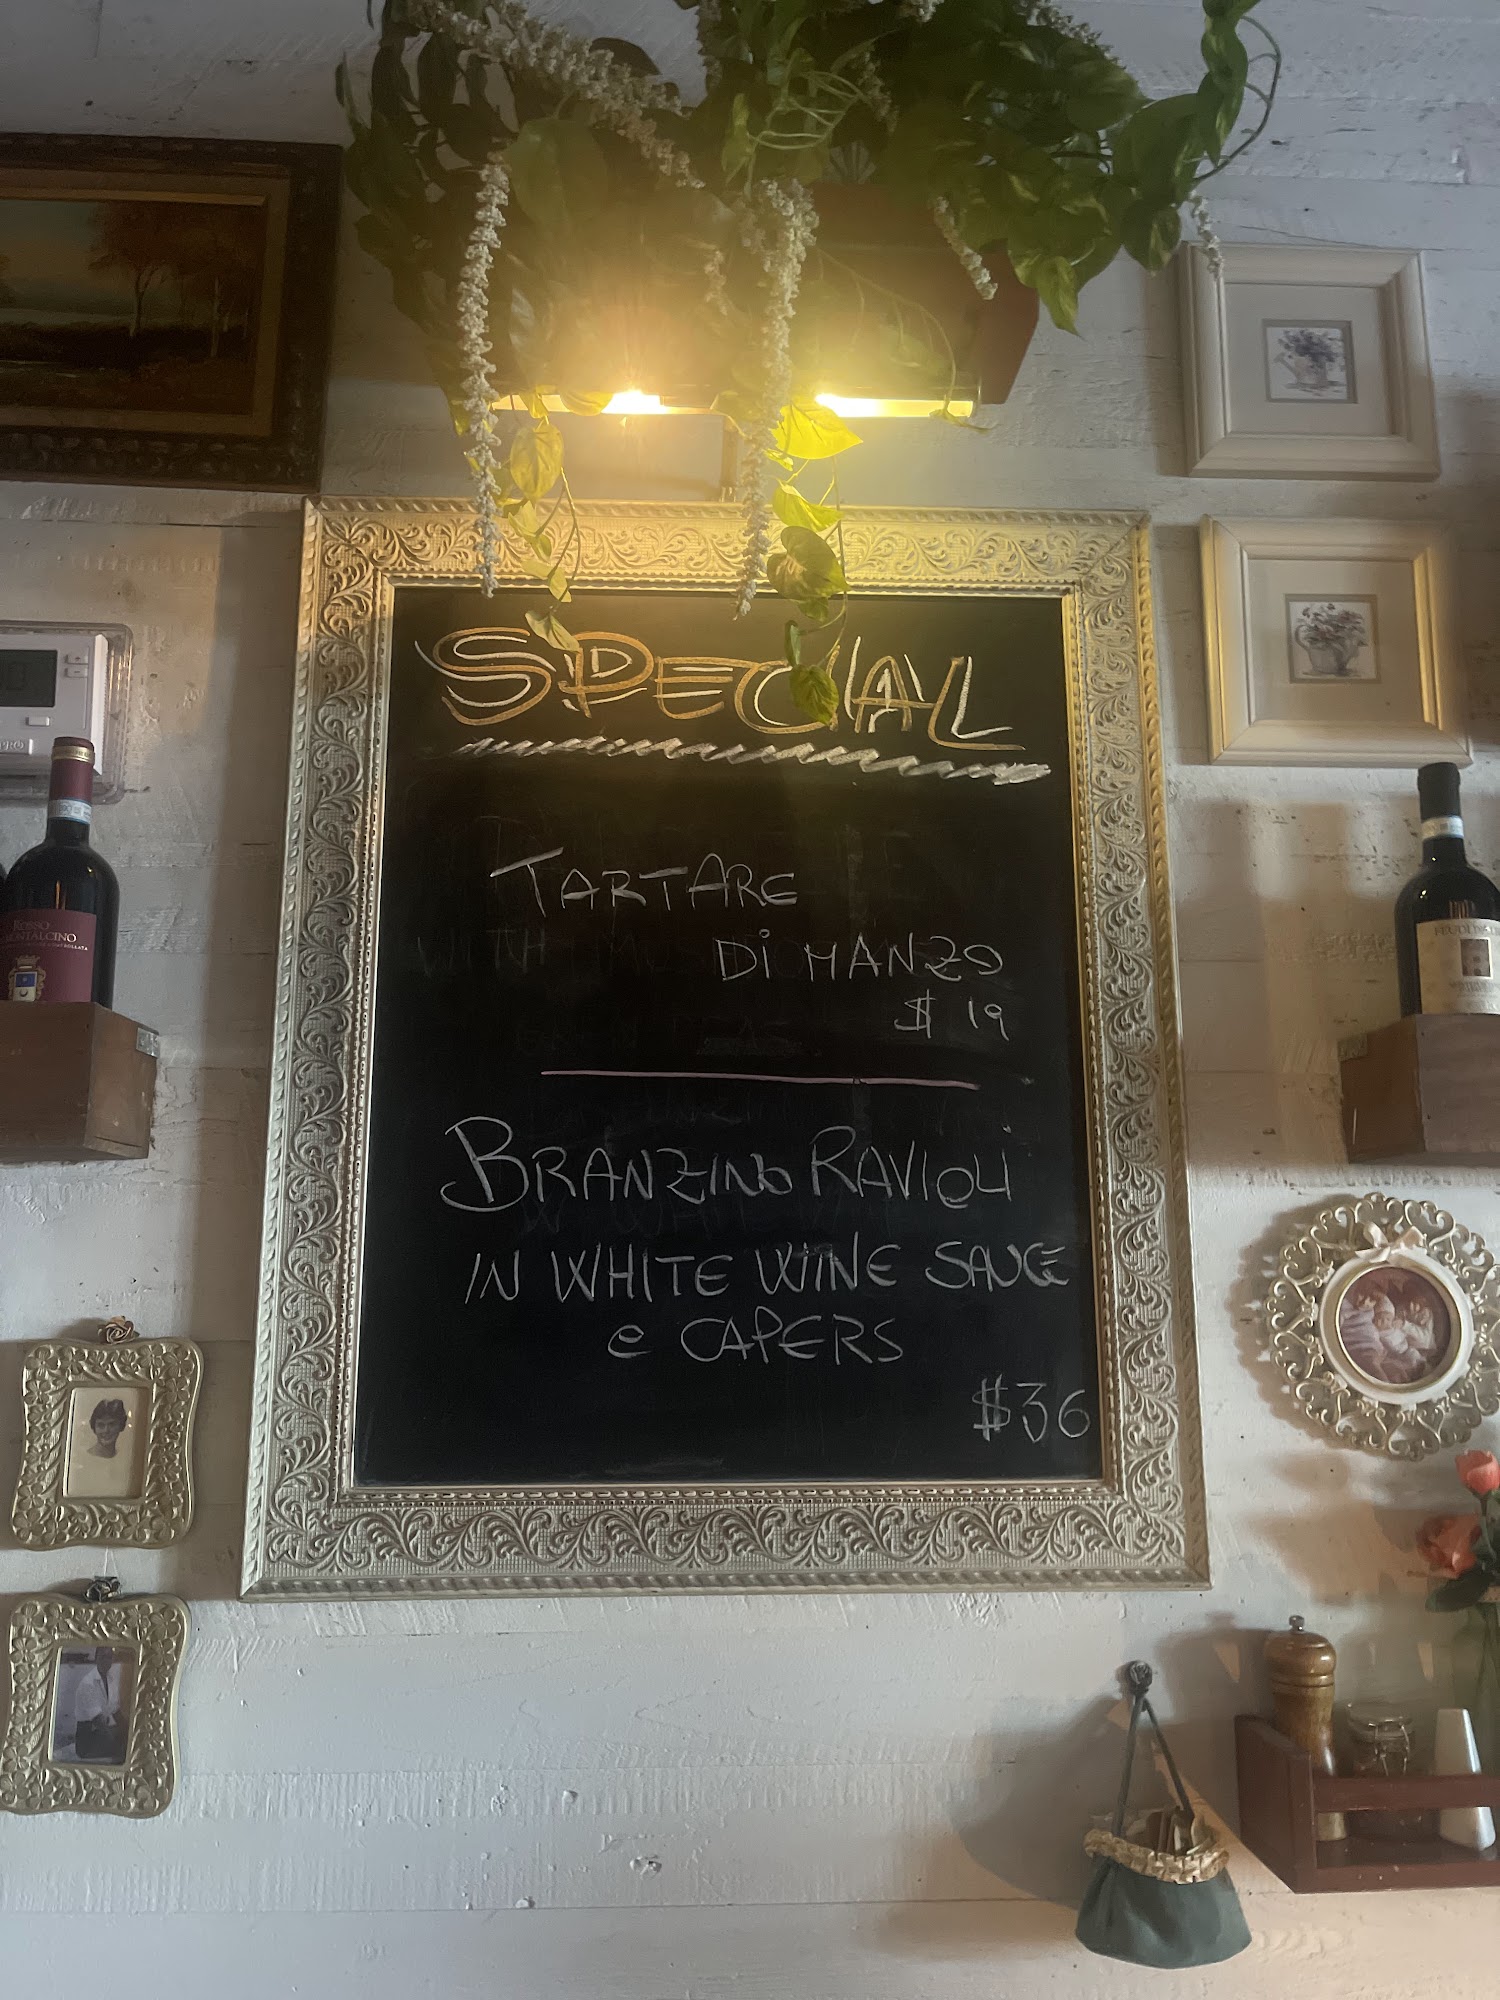 SPECIAL
TARTARE
Di MANZO
$ 19
BRANZINO RAVIOLI
IN WHITE WINE SAUCE
e CAPERS
$36
ROSSO
MONTALCINO